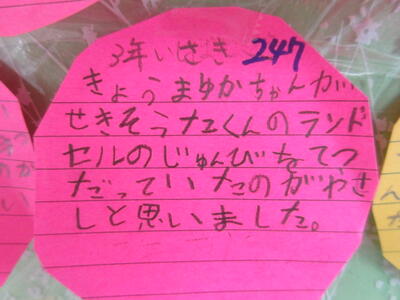 3年いさき 247
きょうまゆかちゃんが
せきそうエくんのランド
セルのじゅんびをてつ
だっていたのがやさ
しと思いました。